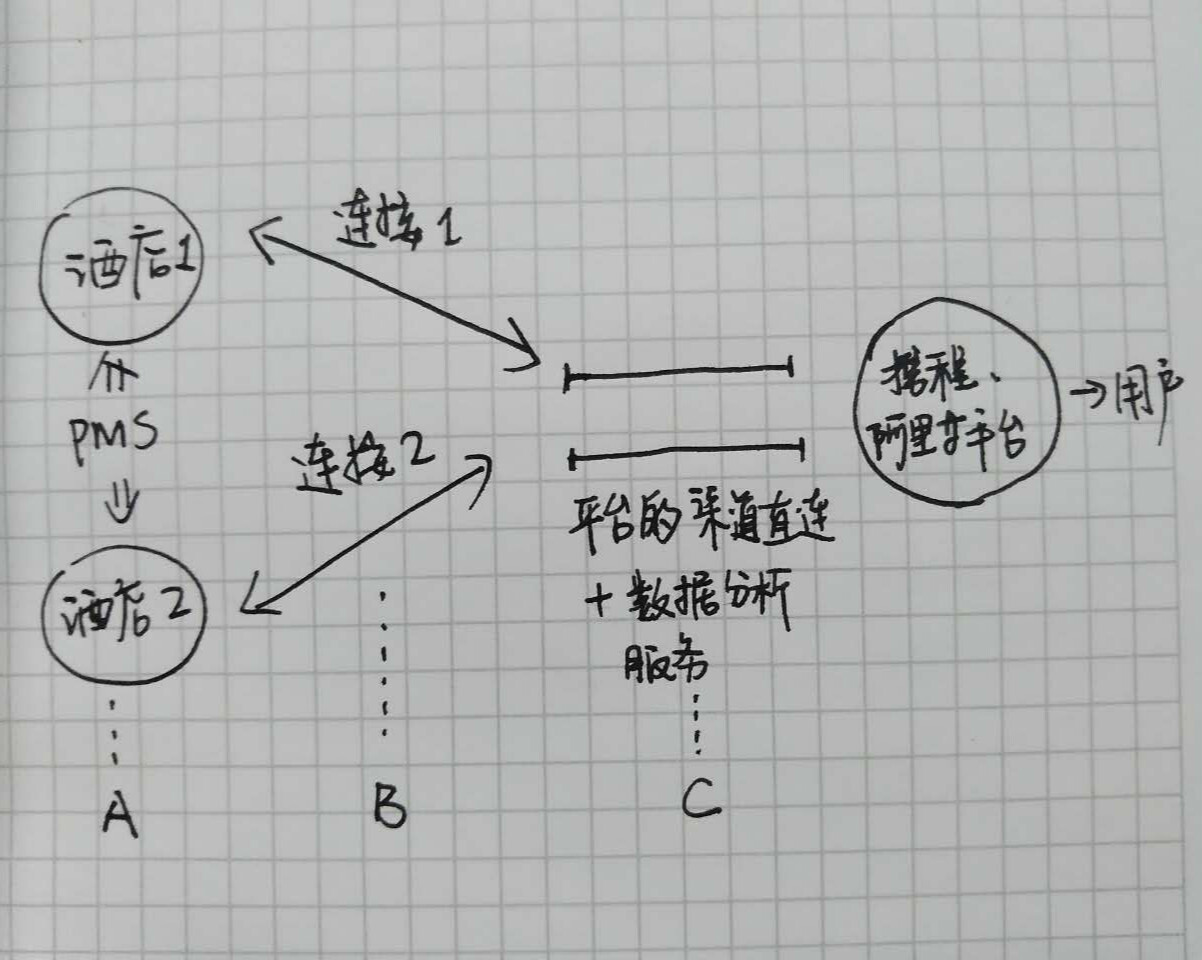 连接1
酒店1
携程、
→用户
阿里等平台
PMS
连接2
平台的渠道直连
+数据分析
服务
酒店2
A
B
C